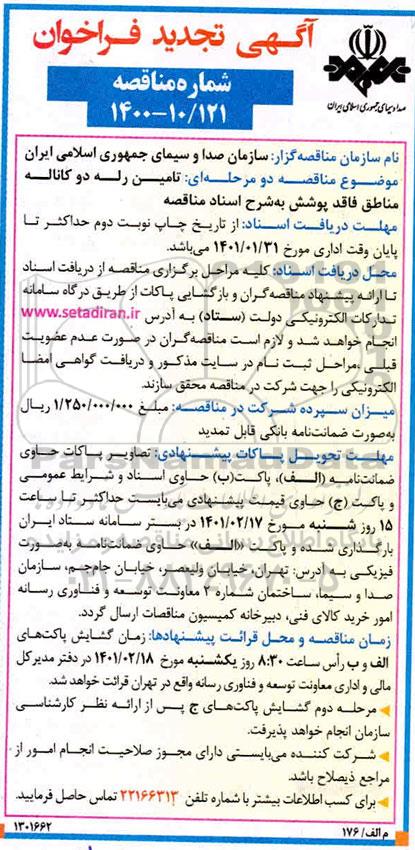 آگهی تجدید فراخوان
صدا و سیمای جمهوری اسلامی ایران
شماره مناقصه
۱۴۰۰-۱۰/۱۲۱
نام سازمان مناقصه‌گزار: سازمان صدا و سیمای جمهوری اسلامی ایران
موضوع مناقصه دو مرحله‌ای: تامین رله دو کاناله
مناطق فاقد پوشش به‌شرح اسناد مناقصه
مهلت دریافت اسناد: از تاریخ چاپ نوبت دوم حداکثر تا
پایان وقت اداری مورخ ۱۴۰۱/۰۱/۳۱ می‌باشد.
محل دریافت اسناد: کلیه مراحل برگزاری مناقصه از دریافت اسناد
تا ارائه پیشنهاد مناقصه‌گران و بازگشایی پاکات از طریق درگاه سامانه
تدارکات الکترونیکی دولت (ستاد) به آدرس www.setadiran.ir
انجام خواهد شد و لازم است مناقصه‌گران در صورت عدم عضویت
قبلی ،مراحل ثبت نام در سایت مذکور و دریافت گواهی امضا
الکترونیکی را جهت شرکت در مناقصه محقق سازند.
میزان سپرده شرکت در مناقصه: مبلغ ۱/۲۵۰/۰۰۰/۰۰۰ ریال
به‌صورت ضمانت‌نامه بانکی قابل تمدید
مهلت تحویل پاکات پیشنهادی: تصاویر پاکات حاوی
ضمانت‌نامه (الف)، پاکت(ب) حاوی اسناد و شرایط عمومی
و پاکت (ج) حاوی قیمت پیشنهادی می‌بایست حداکثر تا ساعت
۱۵ روز شنبه مورخ ۱۴۰۱/۰۲/۱۷ در بستر سامانه ستاد ایران
بارگذاری شده و پاکت «الف» حاوی ضمانت‌نامه به‌صورت
فیزیکی به آدرس: تهران، خیابان ولیعصر، خیابان جام‌جم، سازمان
صدا و سیما، ساختمان شماره ۲ معاونت توسعه و فناوری رسانه
امور خرید کالای فنی، دبیرخانه کمیسیون مناقصات ارسال گردد.
زمان مناقصه و محل قرائت پیشنهادها: زمان گشایش پاکت‌های
الف و ب رأس ساعت ۸:۳۰ روز یکشنبه مورخ ۱۴۰۱/۰۲/۱۸ در دفتر مدیرکل
مالی و اداری معاونت توسعه و فناوری رسانه واقع در تهران قرائت خواهد شد.
مرحله دوم گشایش پاکت‌های ج پس از ارائه نظر کارشناسی
سازمان انجام خواهد پذیرفت.
شرکت کننده می‌بایستی دارای مجوز صلاحیت انجام امور از
مراجع ذیصلاح باشد.
برای کسب اطلاعات بیشتر با شماره تلفن ۲۲۱۶۶۳۱۳ تماس حاصل فرمایید.
م الف/ ۱۷۶
۱۳۰۱۶۶۲